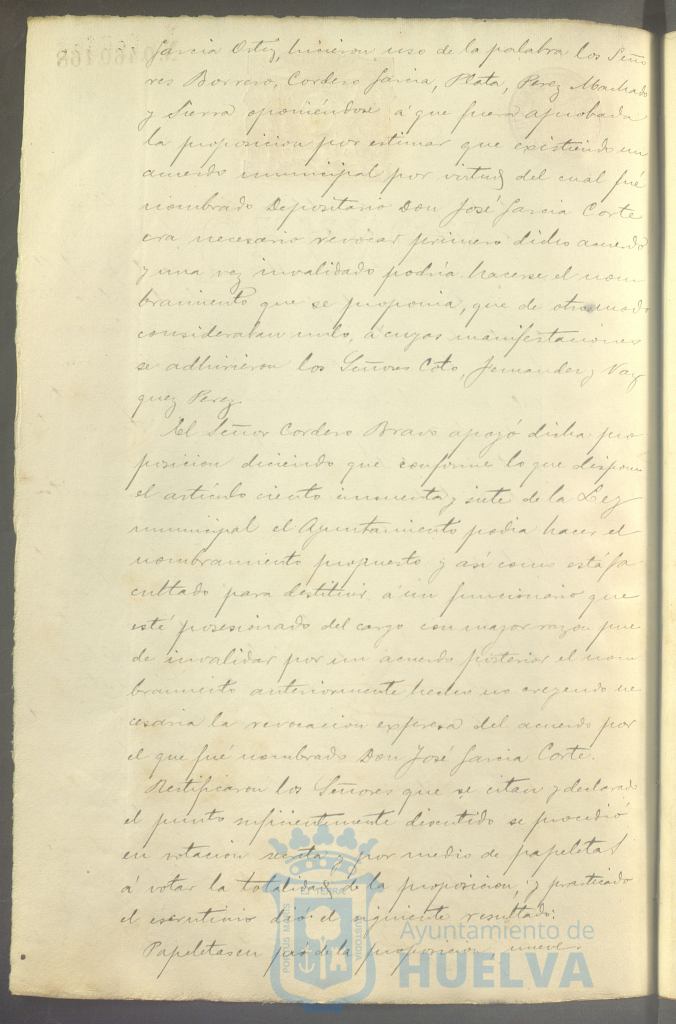 Garcia Ortiz, hicieron uso de la palabra los Seño
res Borrero, Cordero Garcia, Plata, Perez Machado
y Sierra oponiéndose á que fuera aprobada
la proposicion por estimar que existiendo un
acuerdo municipal por virtud del cual fué
nombrado Depositario Don José Garcia Corte
era necesario revocar primero dicho acuerdo
y una vez invalidado podria hacerse el nom
bramiento que se proponia, que de otro modo
consideraban nulo, á cuyas manifestaciones
se adhirieron los Señores Coto, Fernandez y Vaz
quez Perez
El Señor Cordero Bravo apoyó dicha pro
posicion diciendo que conforme lo que dispone
el artículo ciento cincuenta y siete de la Ley
municipal el Ayuntamiento podia hacer el
nombramiento propuesto y así como está fa
cultado para destituir á un funcionario que
esté posesionado del cargo con mayor razon pue
de invalidar por un acuerdo posterior el nom
bramiento anteriormente hecho no creyendo ne
cesaria la revocacion expresa del acuerdo por
el que fué nombrado Don José Garcia Corte.
Rectificaron los Señores que se citan y declarado
el punto suficientemente discutido se procedió
en votacion secreta y por medio de papeletas
á votar la totalidad de la proposicion, y practicado
el escrutinio dió el siguiente resultado:
Papeletas en pró de la proposicion, nueve.
PORTUS MARIS
ET TERRÆ
CUSTODIA
Ayuntamiento de
HUELVA